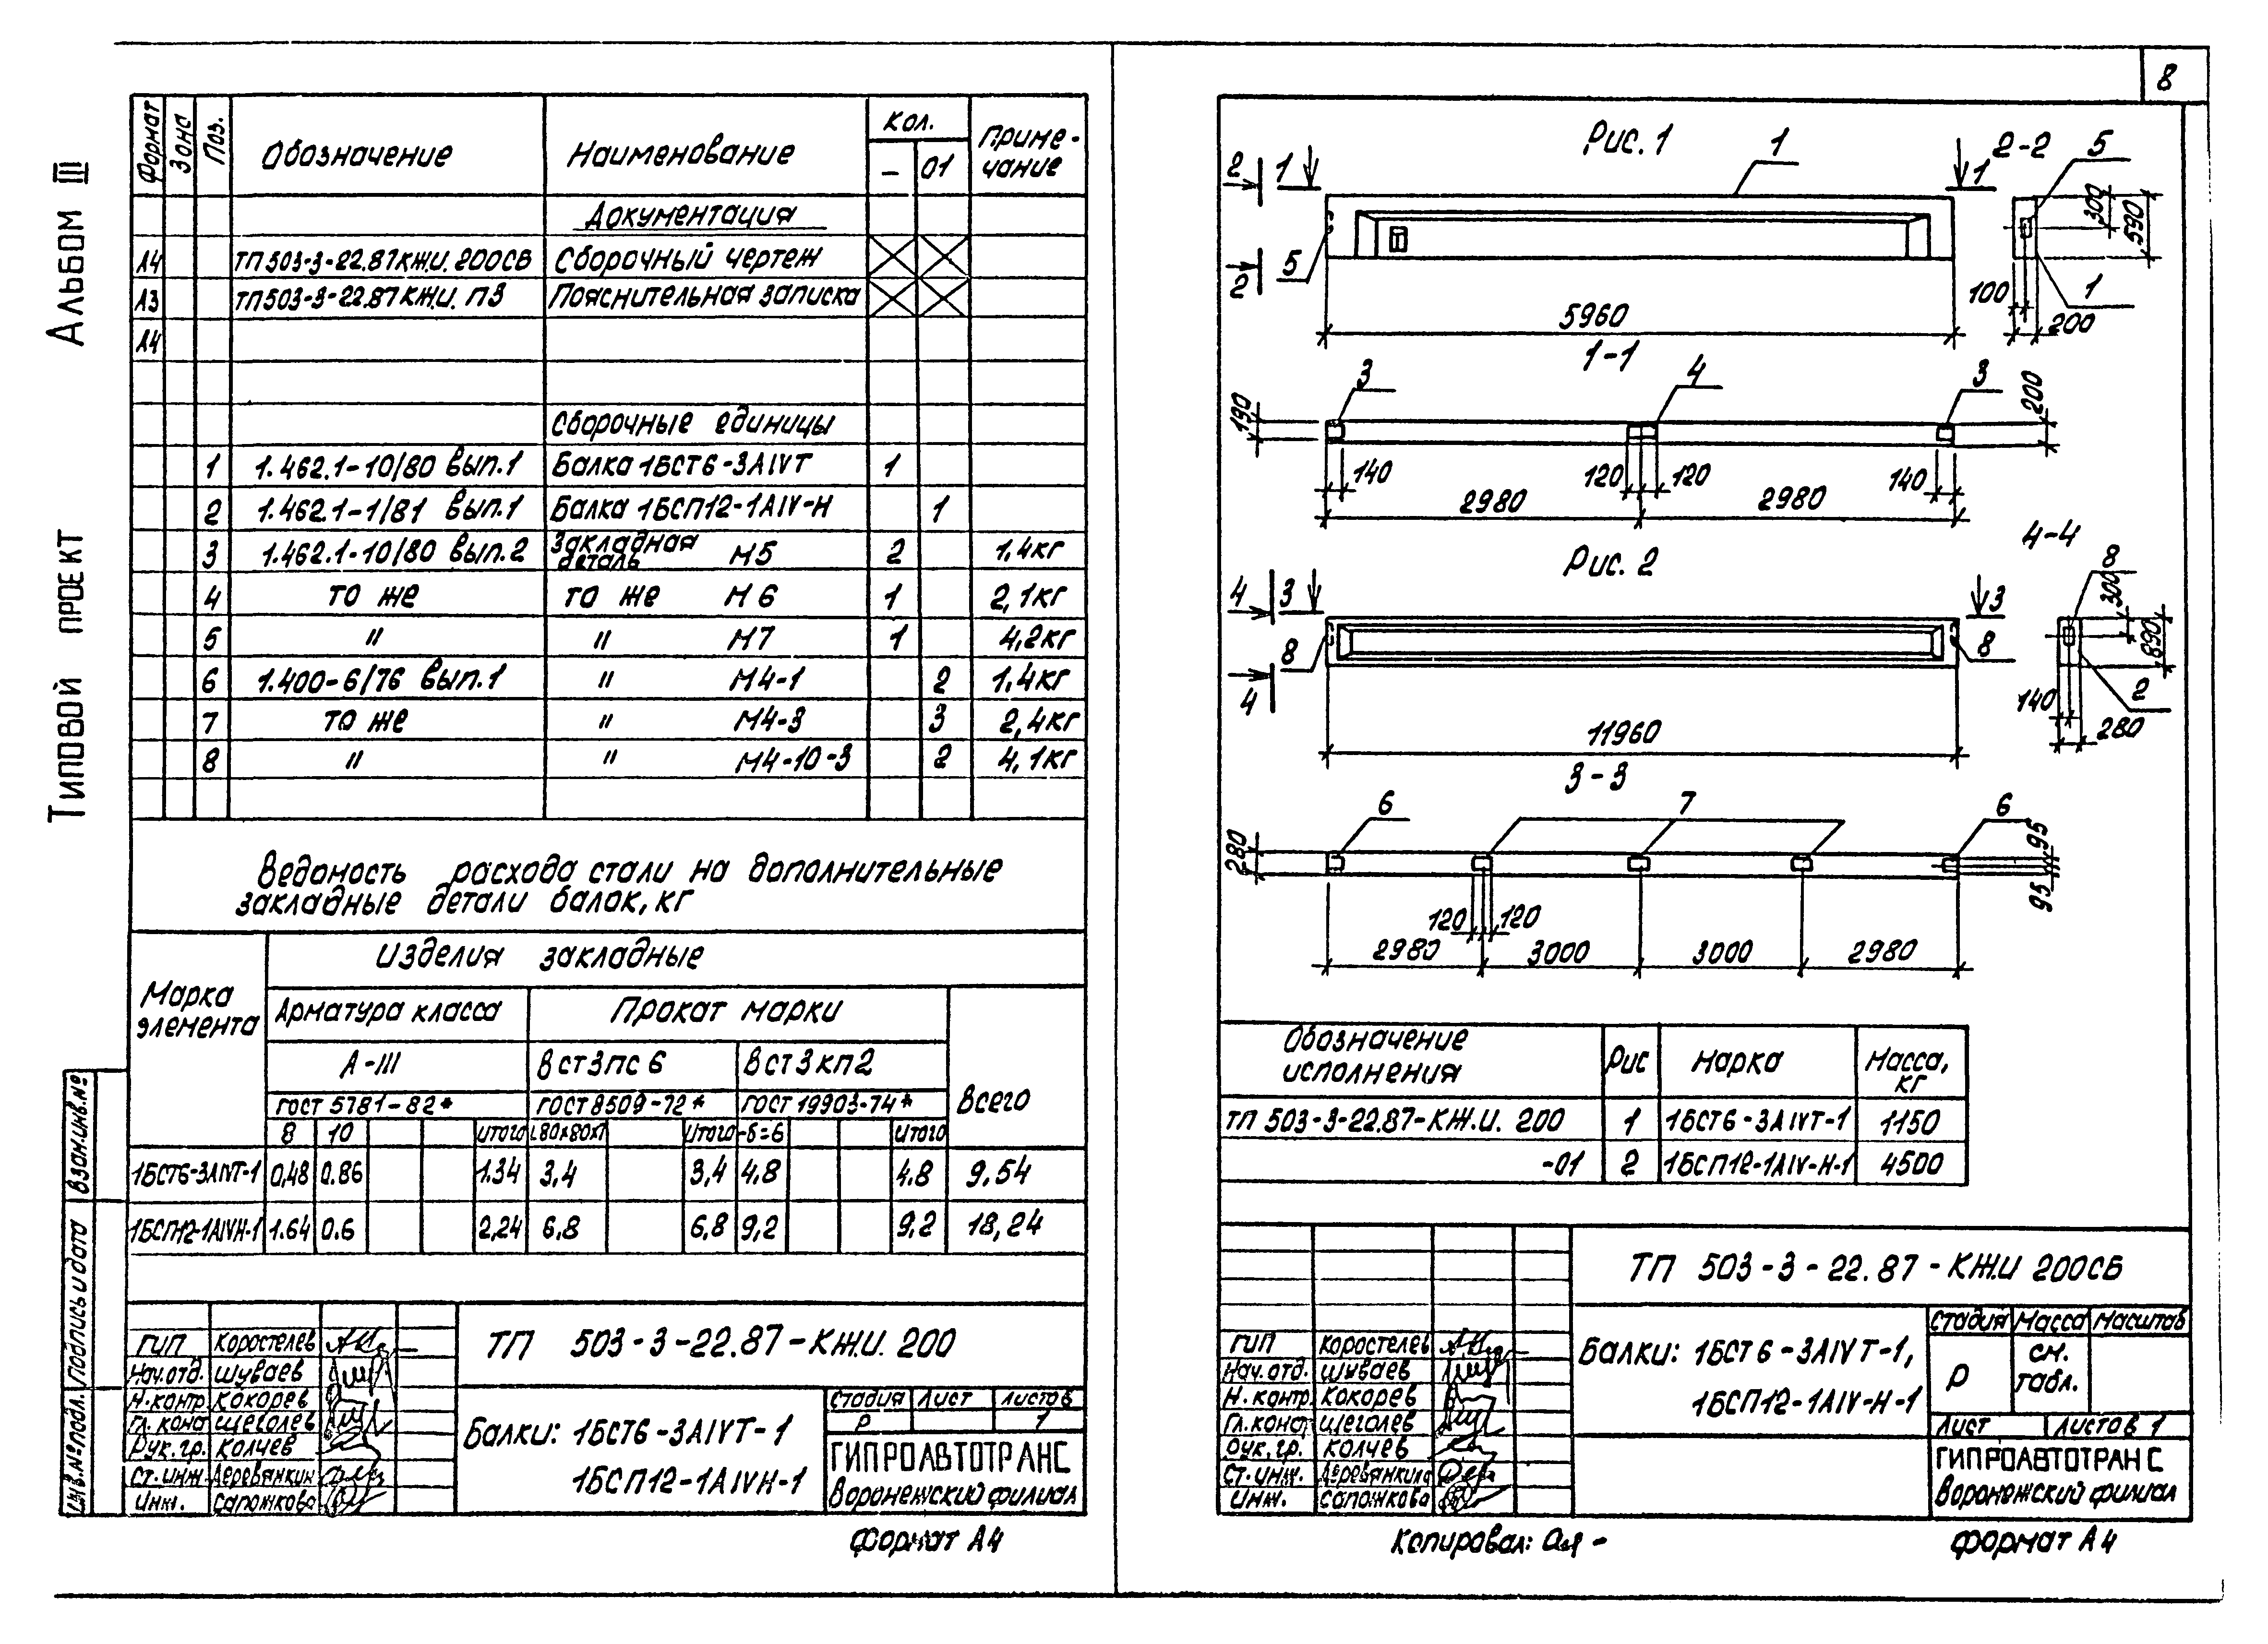 Альбом III
Типовой проект
Взам.инв.№
Подпись и дата
Инв.№ подл.
Формат Зона Поз. Обозначение Наименование Кол. Приме-
чание
– 01
Документация
А4 ТП 503-3-22.87 КЖ.И. 200СБ Сборочный чертеж
А3 ТП 503-3-22.87 КЖ.И. ПЗ Пояснительная записка
А4
Сборочные единицы
1 1.462.1-10/80 вып.1 Балка 1БСТ6-3АIVТ 1
2 1.462.1-1/81 вып.1 Балка 1БСП12-1АIV-Н 1
3 1.462.1-10/80 вып.2 Закладная деталь М5 2 1,4кг
4 то же то же М6 1 2,1кг
5 " " М7 1 4,2кг
6 1.400-6/76 вып.1 " М4-1 2 1,4кг
7 то же " М4-3 3 2,4кг
8 " " М4-10-3 2 4,1кг
Ведомость расхода стали на дополнительные
закладные детали балок, кг
Марка
элемента
Изделия закладные
Арматура класса Прокат марки Всего
А-III Вст3пс6 Вст3кп2
ГОСТ 5781-82* ГОСТ 8509-72* ГОСТ 19903-74*
8 10 Итого L80х80х7 Итого -δ=6 Итого
1БСТ6-3АIVТ-1 0,48 0.86 1.34 3,4 3,4 4,8 4.8 9,54
1БСП12-1АIVН-1 1.64 0.6 2,24 6,8 6,8 9,2 9,2 18,24
ГИП Коростелев
Нач.отд. Шуваев
Н.контр Кокорев
Гл.конс Щеголев
Рук.гр. Колчев
Ст.инж Деревянкин
Инж. Сапожкова
ТП 503-3-22.87-КЖ.И. 200
Балки: 1БСТ6-3АIVТ-1
1БСП12-1АIVН-1
Стадия Лист Листов
Р 1
ГИПРОАВТОТРАНС
Воронежский филиал
Формат А4
8
Рис. 1
1
2-2
5
2 1 1
2 5
300
590
100
200
1
5960
1-1
3 4 3
190
200
140 120 120 140
2980 2980
Рис. 2
4-4
8
4 3 3
4 8 8
300
890
140
280
2
11960
3-3
6 7 6
280
95
95
120 120
2980 3000 3000 2980
Обозначение
исполнения
Рис Марка Масса,
кг
ТП 503-3-22.87-КЖ.И. 200 1 1БСТ6-3АIVТ-1 1150
-01 2 1БСП12-1АIV-Н-1 4500
ГИП Коростелев
Нач.отд. Шуваев
Н.контр Кокорев
Гл.конс Щеголев
Рук.гр. Колчев
Ст.инж. Деревянкина
Инж. Сапожкова
ТП 503-3-22.87-КЖ.И 200СБ
Балки: 1БСТ6-3АIVТ-1,
1БСП12-1АIV-Н-1
Стадия Масса Масштаб
Р см.
табл.
Лист Листов 1
ГИПРОАВТОТРАНС
Воронежский филиал
Копировал:
Формат А4